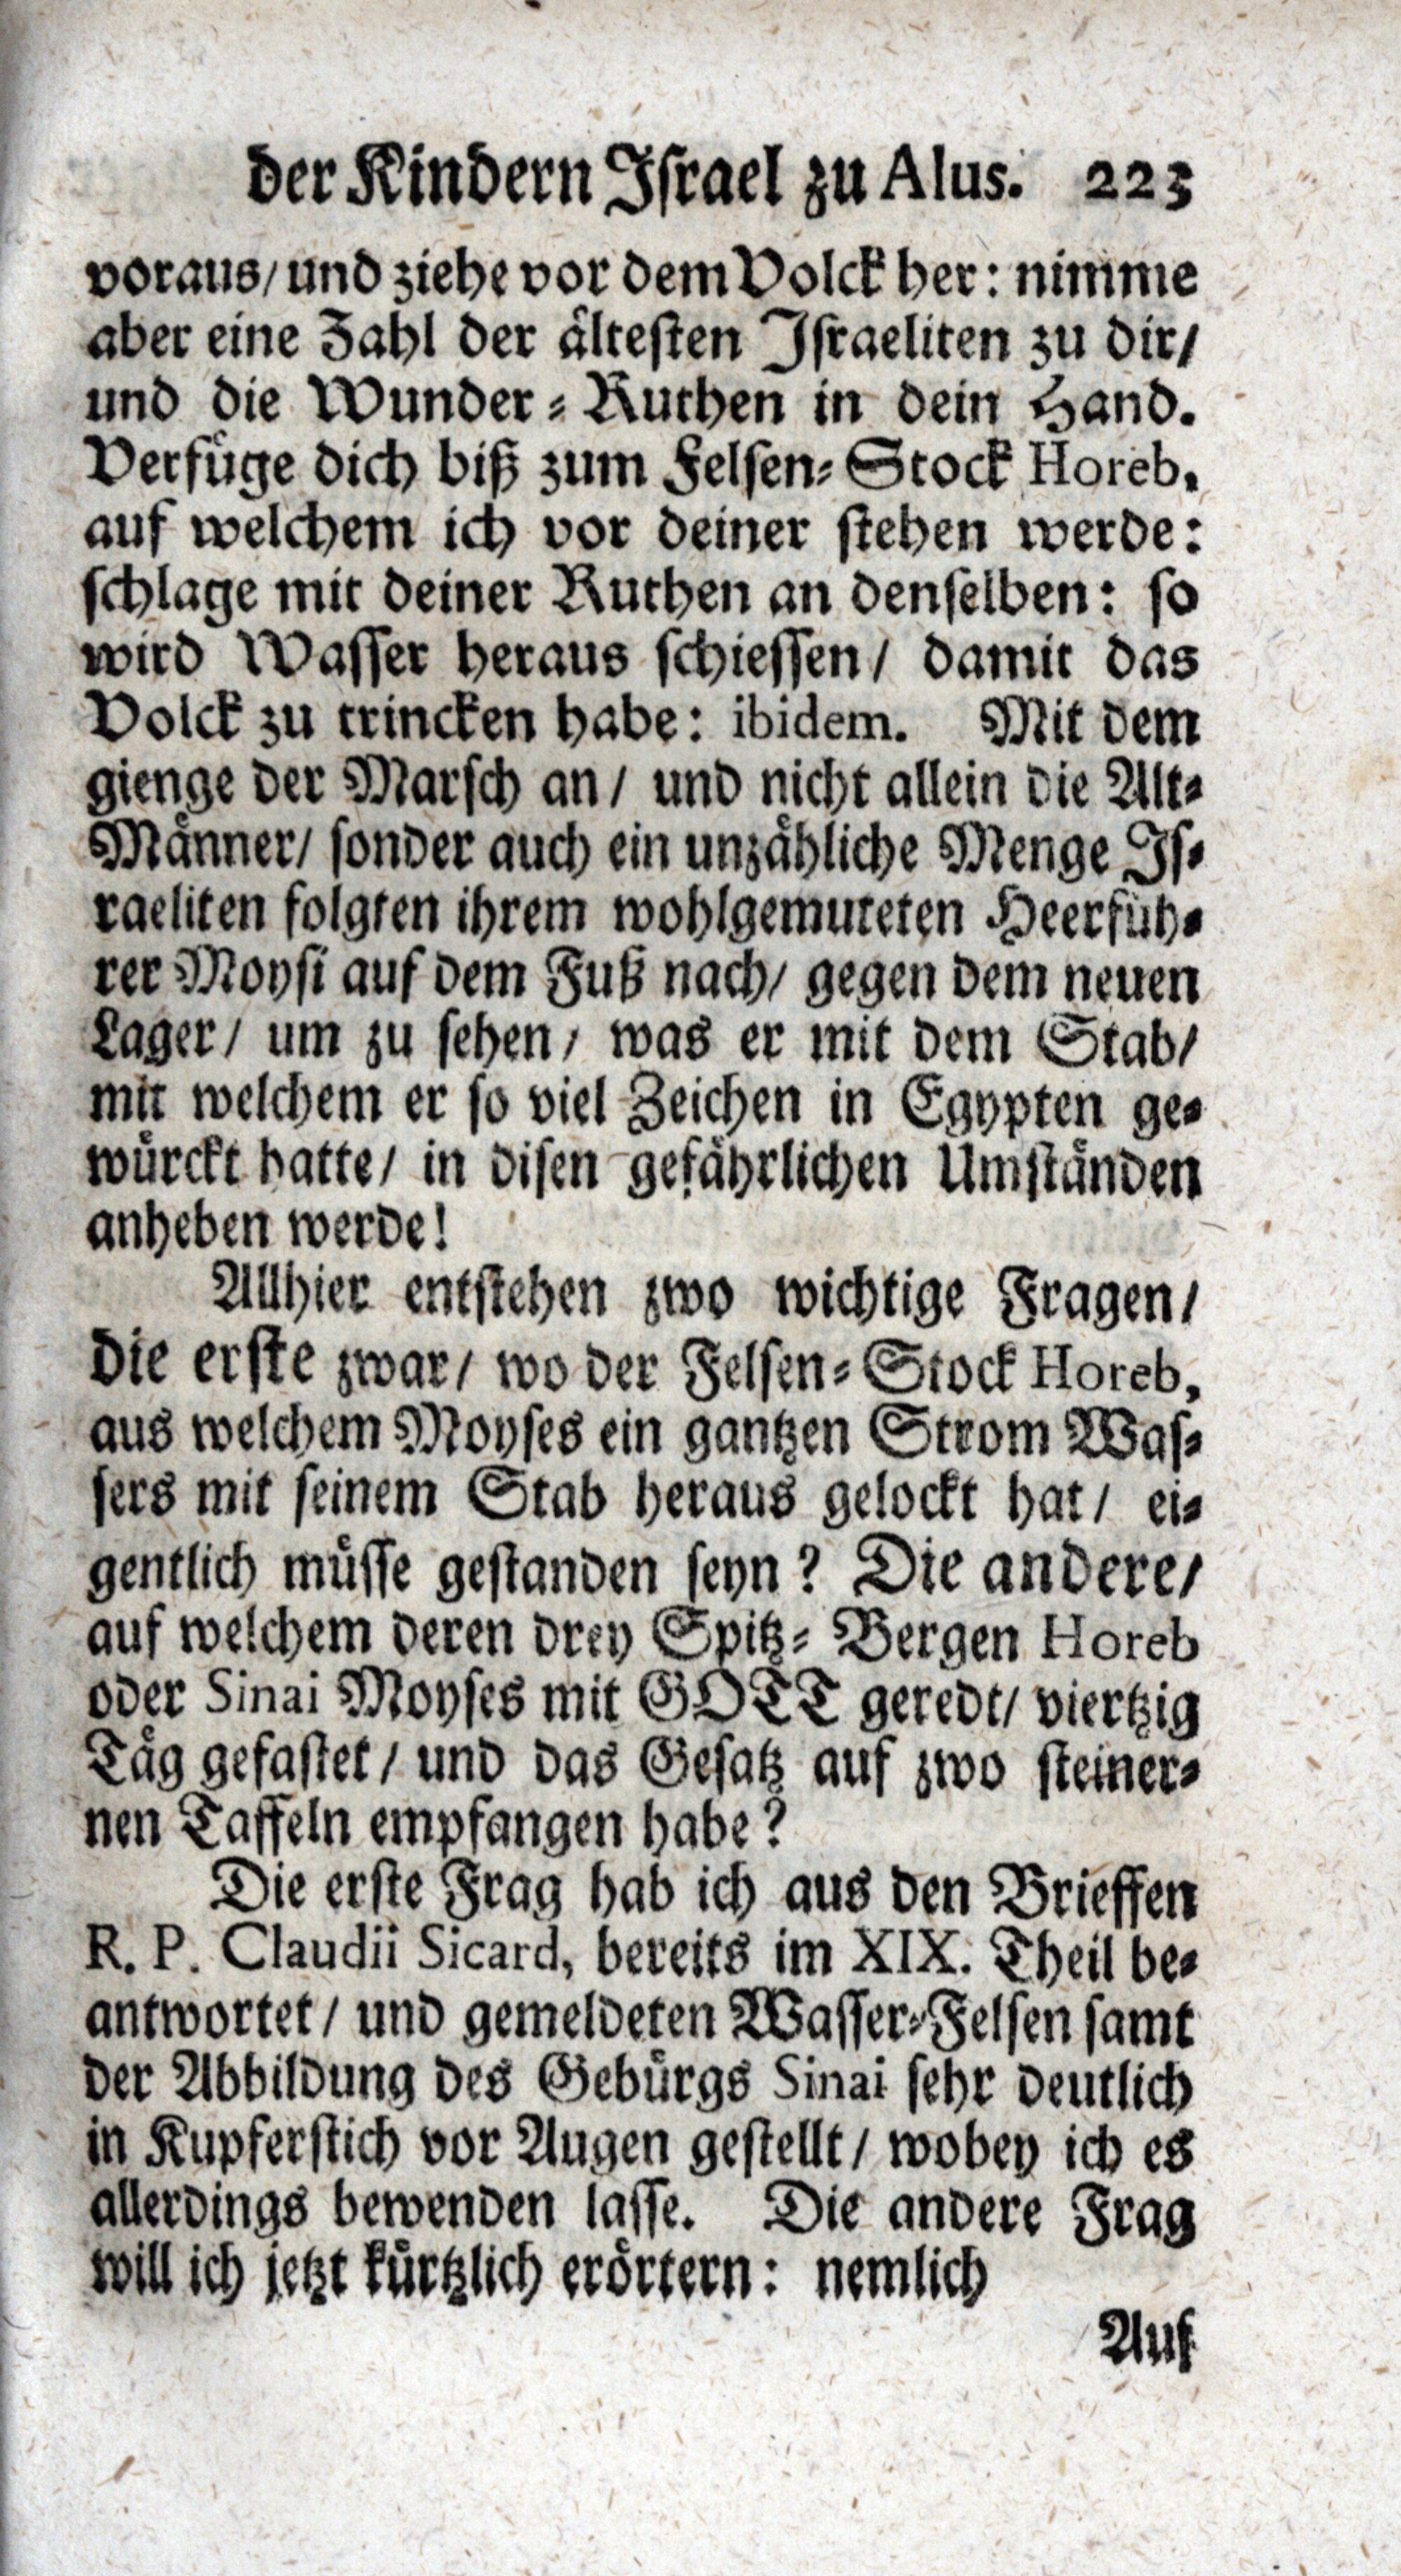 der Kindern Israel zu Alus. 223
voraus/ und ziehe vor dem Volck her: nimme
aber eine Zahl der ältesten Israeliten zu dir/
und die Wunder-Ruthen in dein Hand.
Verfüge dich biß zum Felsen-Stock Horeb,
auf welchem ich vor deiner stehen werde:
schlage mit deiner Ruthen an denselben: so
wird Wasser heraus schiessen/ damit das
Volck zu trincken habe: ibidem. Mit dem
gienge der Marsch an/ und nicht allein die Alt-
Männer/ sonder auch ein unzähliche Menge Is-
raeliten folgten ihrem wohlgemuteten Heerfüh-
rer Moysi auf dem Fuß nach/ gegen dem neuen
Lager/ um zu sehen/ was er mit dem Stab/
mit welchem er so viel Zeichen in Egypten ge-
würckt hatte/ in disen gefährlichen Umständen
anheben werde!
Allhier entstehen zwo wichtige Fragen/
die erste zwar/ wo der Felsen-Stock Horeb,
aus welchem Moyses ein gantzen Strom Was-
sers mit seinem Stab heraus gelockt hat/ ei-
gentlich müsse gestanden seyn? Die andere/
auf welchem deren drey Spitz-Bergen Horeb
oder Sinai Moyses mit GOTT geredt/ viertzig
Täg gefastet/ und das Gesatz auf zwo steiner-
nen Taffeln empfangen habe?
Die erste Frag hab ich aus den Brieffen
R. P. Claudii Sicard, bereits im XIX. Theil be-
antwortet/ und gemeldeten Wasser-Felsen samt
der Abbildung des Gebürgs Sinai sehr deutlich
in Kupferstich vor Augen gestellt/ wobey ich es
allerdings bewenden lasse. Die andere Frag
will ich jetzt kürtzlich erörtern: nemlich
Auf